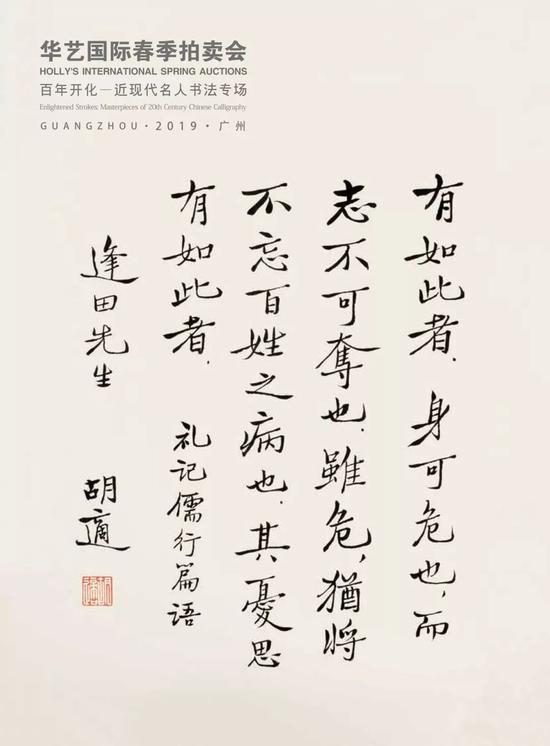 华艺国际春季拍卖会
HOLLY'S INTERNATIONAL SPRING AUCTIONS
百年开化—近现代名人书法专场
Enlightened Strokes: Masterpieces of 20th Century Chinese Calligraphy
GUANGZHOU · 2019 · 广州
有如此者．身可危也，而
志不可奪也．雖危，猶將
不忘百姓之病也．其憂思
有如此者． 礼记儒行篇语
逢田先生 胡適